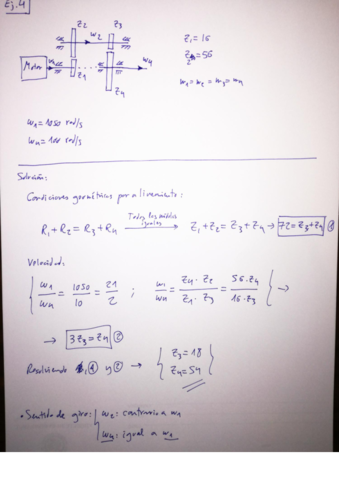 Ej.4
Z2 Z3
w2
Motor w1 w4
Z1 Z4
Z1 = 16
Z2 = 56
m1 = m2 = m3 = m4
w1 = 1050 rad/s
w4 = 100 rad/s
Solución:
Condiciones geométricas para alineamiento:
R1 + R2 = R3 + R4 Todos los módulos iguales → Z1 + Z2 = Z3 + Z4 → 72 = Z3 + Z4 ①
Velocidad:
{ w1/w4 = 1050/10 = 21/2 ; w1/w4 = Z4 · Z2 / Z1 · Z3 = 56 · Z4 / 16 · Z3 } →
→ 3Z3 = Z4 ②
Resolviendo ① y ② → { Z3 = 18
Z4 = 54
• Sentido de giro: { w2: contrario a w1
w4: igual a w1